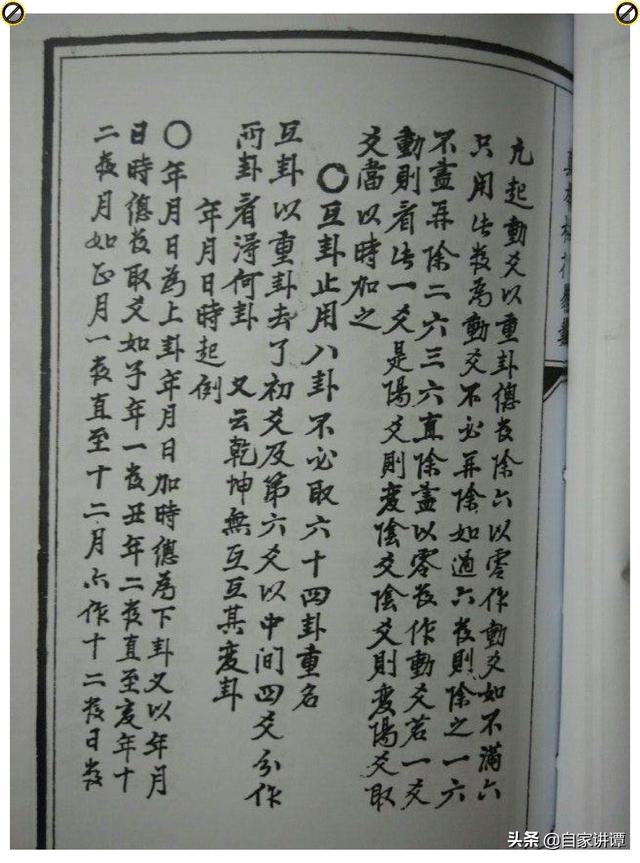 凡起動爻以重卦總数除六以零作動爻如不滿六
只用此数為動爻不必再除如過六数則除之一六
不盡再除二六三六直除盡以零数作動爻若一爻
動則看此一爻是陽爻則変陰爻陰爻則変陽爻取
爻當以時加之
〇互卦止用八卦不必取六十四卦重名
互卦以重卦去了初爻及第六爻以中间四爻分作
両卦看得何卦 又云乾坤無互互其変卦
年月日時起例
〇年月日為上卦年月日加時總為下卦又以年月
日時總数取爻如子年一数丑年二数直至亥年十
二数月如正月一数直至十二月亦作十二数日数
头条 @自家讲谭